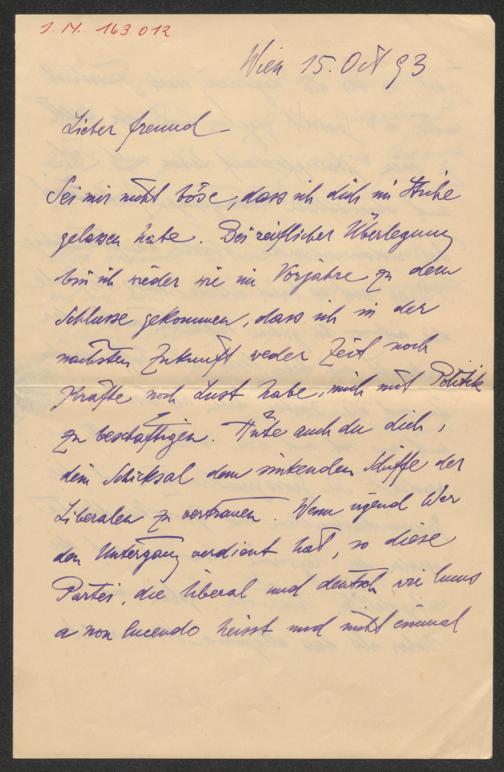 J. N. 163012
Wien 15. Oct 93
Lieber Freund
Sei mir nicht böse, dass ich dich im Stiche
gelassen habe. Bei reiflicher Überlegung
bin ich wieder wie im Vorjahre zu dem
Schlusse gekommen, dass ich in der
nächsten Zukunft weder Zeit noch
Kräfte noch Lust habe, mich mit Politik
zu beschäftigen. Hüte auch du dich,
dein Schicksal dem sinkenden Schiffe der
Liberalen zu vertrauen. Wenn irgend Wer
den Untergang verdient hat, so diese
Partei, die liberal und deutsch wie lucus
a non lucendo heisst und nicht einmal